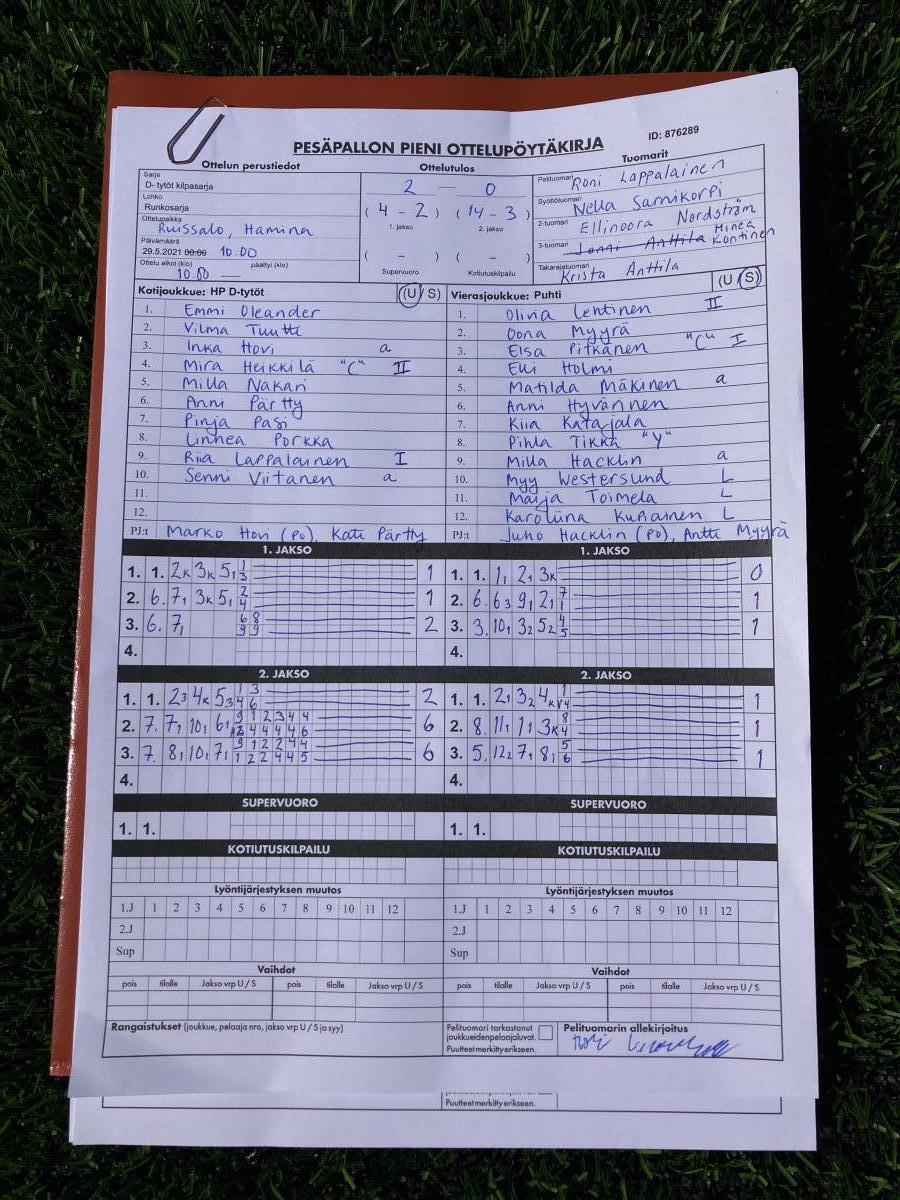 PESÄPALLON PIENI OTTELUPÖYTÄKIRJA
ID: 876289
Ottelun perustiedot
Sarja
D- tytöt kilpasarja
Lohko
Runkosarja
Ottelupaikka
Ruissalo, Hamina
Päivämäärä
29.5.2021 00:00 10.00
Ottelu alkoi (klo) päättyi (klo)
10.00 —
Ottelutulos
2 — 0
( 4 - 2 ) ( 14 - 3 )
1. jakso 2. jakso
( - ) ( - )
Supervuoro Kotiutuskilpailu
Tuomarit
Pelituomari Roni Lappalainen
Syöttötuomari Nella Sarnikorpi
2-tuomari Ellinoora Nordström
3-tuomari Jonni Anttila Minea Kontinen
Takarajatuomari Krista Anttila
Kotijoukkue: HP D-tytöt (U/ S)
1. Emmi Oleander
2. Vilma Tuutti
3. Inka Hovi a
4. Mira Heikkilä "C" II
5. Milla Nakari
6. Anni Pärtty
7. Pinja Pasi
8. Linnea Porkka
9. Riia Lappalainen I
10. Senni Viitanen a
11.
12.
PJ:t Marko Hovi (PO), Kati Pärtty
Vierasjoukkue: Puhti (U / S)
1. Olivia Lehtinen II
2. Oona Myyrä
3. Elsa Pitkänen "C" I
4. Elli Holmi
5. Matilda Mäkinen a
6. Anni Hyvärinen
7. Kiia Katajala
8. Pihla Tikka "Y"
9. Milla Hacklin a
10. Myy Westersund L
11. Maija Toimela L
12. Karoliina Kuhainen L
PJ:t Juho Hacklin (PO), Antti Myyrä
1. JAKSO
1. 1. 2K 3K 5, 1 3 1
2. 6. 7, 3K 5, 2 4 1
3. 6. 7, 6 8 9 9 2
4.
1. JAKSO
1. 1. 1, 2, 3K 0
2. 6. 63 9, 2, 7 1 1
3. 3. 10, 32 52 4 5 1
4.
2. JAKSO
1. 1. 23 4K 53 1 3 4 6 2
2. 7. 7, 10, 6, 9 1 2 3 4 4 6
3. 7. 8, 10, 7, 9 1 2 2 4 4 1 2 2 4 4 5 6
4.
2. JAKSO
1. 1. 2, 32 4K 1 1
2. 8. 11, 1, 3K 8 4 1
3. 5. 122 7, 8, 5 6 1
4.
SUPERVUORO
1. 1.
SUPERVUORO
1. 1.
KOTIUTUSKILPAILU
KOTIUTUSKILPAILU
Lyöntijärjestyksen muutos
1.J 1 2 3 4 5 6 7 8 9 10 11 12
2.J
Sup
Lyöntijärjestyksen muutos
1.J 1 2 3 4 5 6 7 8 9 10 11 12
2.J
Sup
Vaihdot
pois tilalle Jakso vrp U / S pois tilalle Jakso vrp U / S
Vaihdot
pois tilalle Jakso vrp U / S pois tilalle Jakso vrp U / S
Rangaistukset (joukkue, pelaaja nro, jakso vrp U / S ja syy)
Pelituomari tarkastanut
joukkueidenpelaajaluvat.
Puutteetmerkittyerikseen.
Pelituomarin allekirjoitus
Puutteetmerkittyerikseen.